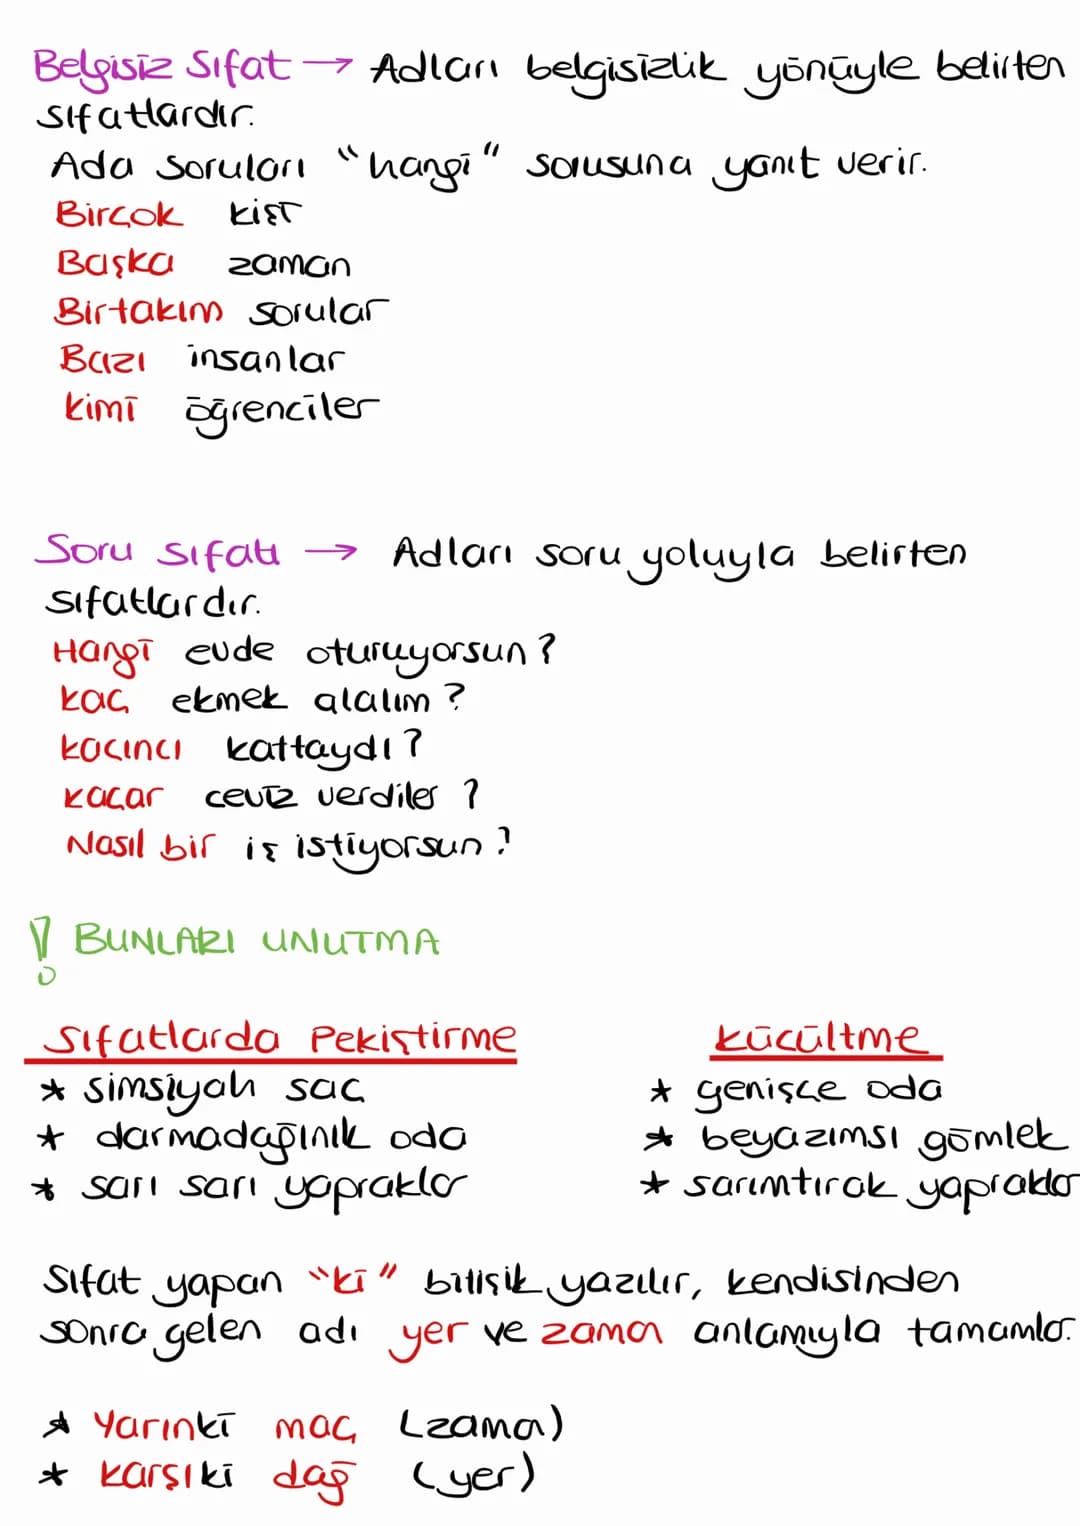 Belgisiz Sıfat → Adları belgisizlik yönüyle belirten
sıfatlardır.
Ada soruları "hangi" sorusuna yanıt verir.
Birçok kişi
Başka zaman
Birtakım sorular
Bazı insanlar
kimi öğrenciler
Soru sıfatı → Adları soru yoluyla belirten
sıfatlardır.
Hangi evde oturuyorsun?
kaç ekmek alalım?
kaçıncı kattaydı?
kaçar ceviz verdiler ?
Nasıl bir iş istiyorsun?
! BUNLARI UNUTMA
Sıfatlarda Pekiştirme
* simsiyah saç
* darmadağınık oda
* sarı sarı yapraklar
Küçültme
* genişçe oda
* beyazımsı gömlek
* sarımtırak yapraklar
Sıfat yapan "ki" bitişik yazılır, kendisinden
sonra gelen adı yer ve zaman anlamıyla tamamlar.
* Yarınki maç (zaman)
* karşıki dağ (yer)